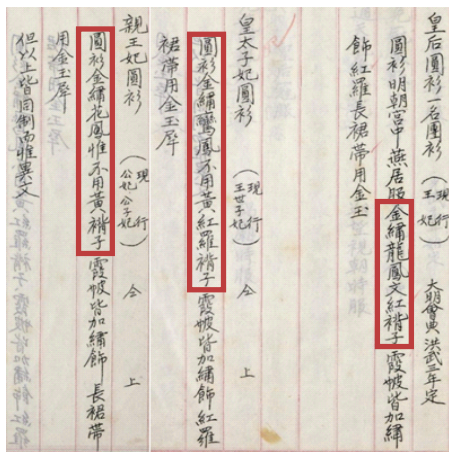 皇后圓衫一名團衫 (現行 王妃) 大明會典 洪武三年定
圓衫明朝宮中燕居服金繡龍鳳文紅褙子霞帔皆加繡
飾 紅羅長裙帶用金玉
皇太子妃圓衫 (現行 王世子妃) 仝 上
圓衫金繡鸞鳳不用黃紅羅褙子 霞帔皆加繡飾 紅羅
裙 帶用金玉犀
親王妃圓衫 (現行 公妃公子妃) 仝 上
圓衫金繡花鳳惟不用黃褙子 霞帔皆加繡飾 長裙帶
用金玉犀
但以上皆同制而惟異文